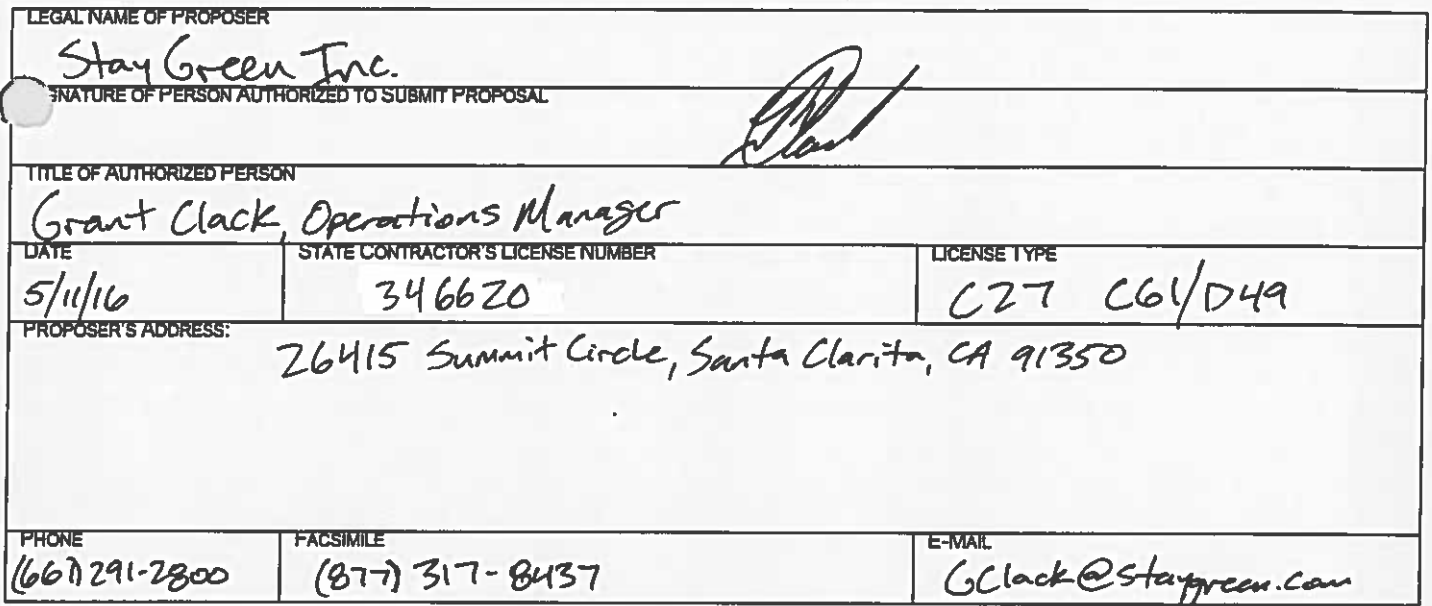 LEGAL NAME OF PROPOSER
Stay Green Inc.
SIGNATURE OF PERSON AUTHORIZED TO SUBMIT PROPOSAL
TITLE OF AUTHORIZED PERSON
Grant Clack, Operations Manager
DATE STATE CONTRACTOR'S LICENSE NUMBER LICENSE TYPE
5/11/16 346620 C27 C61/D49
PROPOSER'S ADDRESS:
26415 Summit Circle, Santa Clarita, CA 91350
PHONE FACSIMILE E-MAIL
(661) 291-2800 (877) 317-8437 GClack@staygreen.com